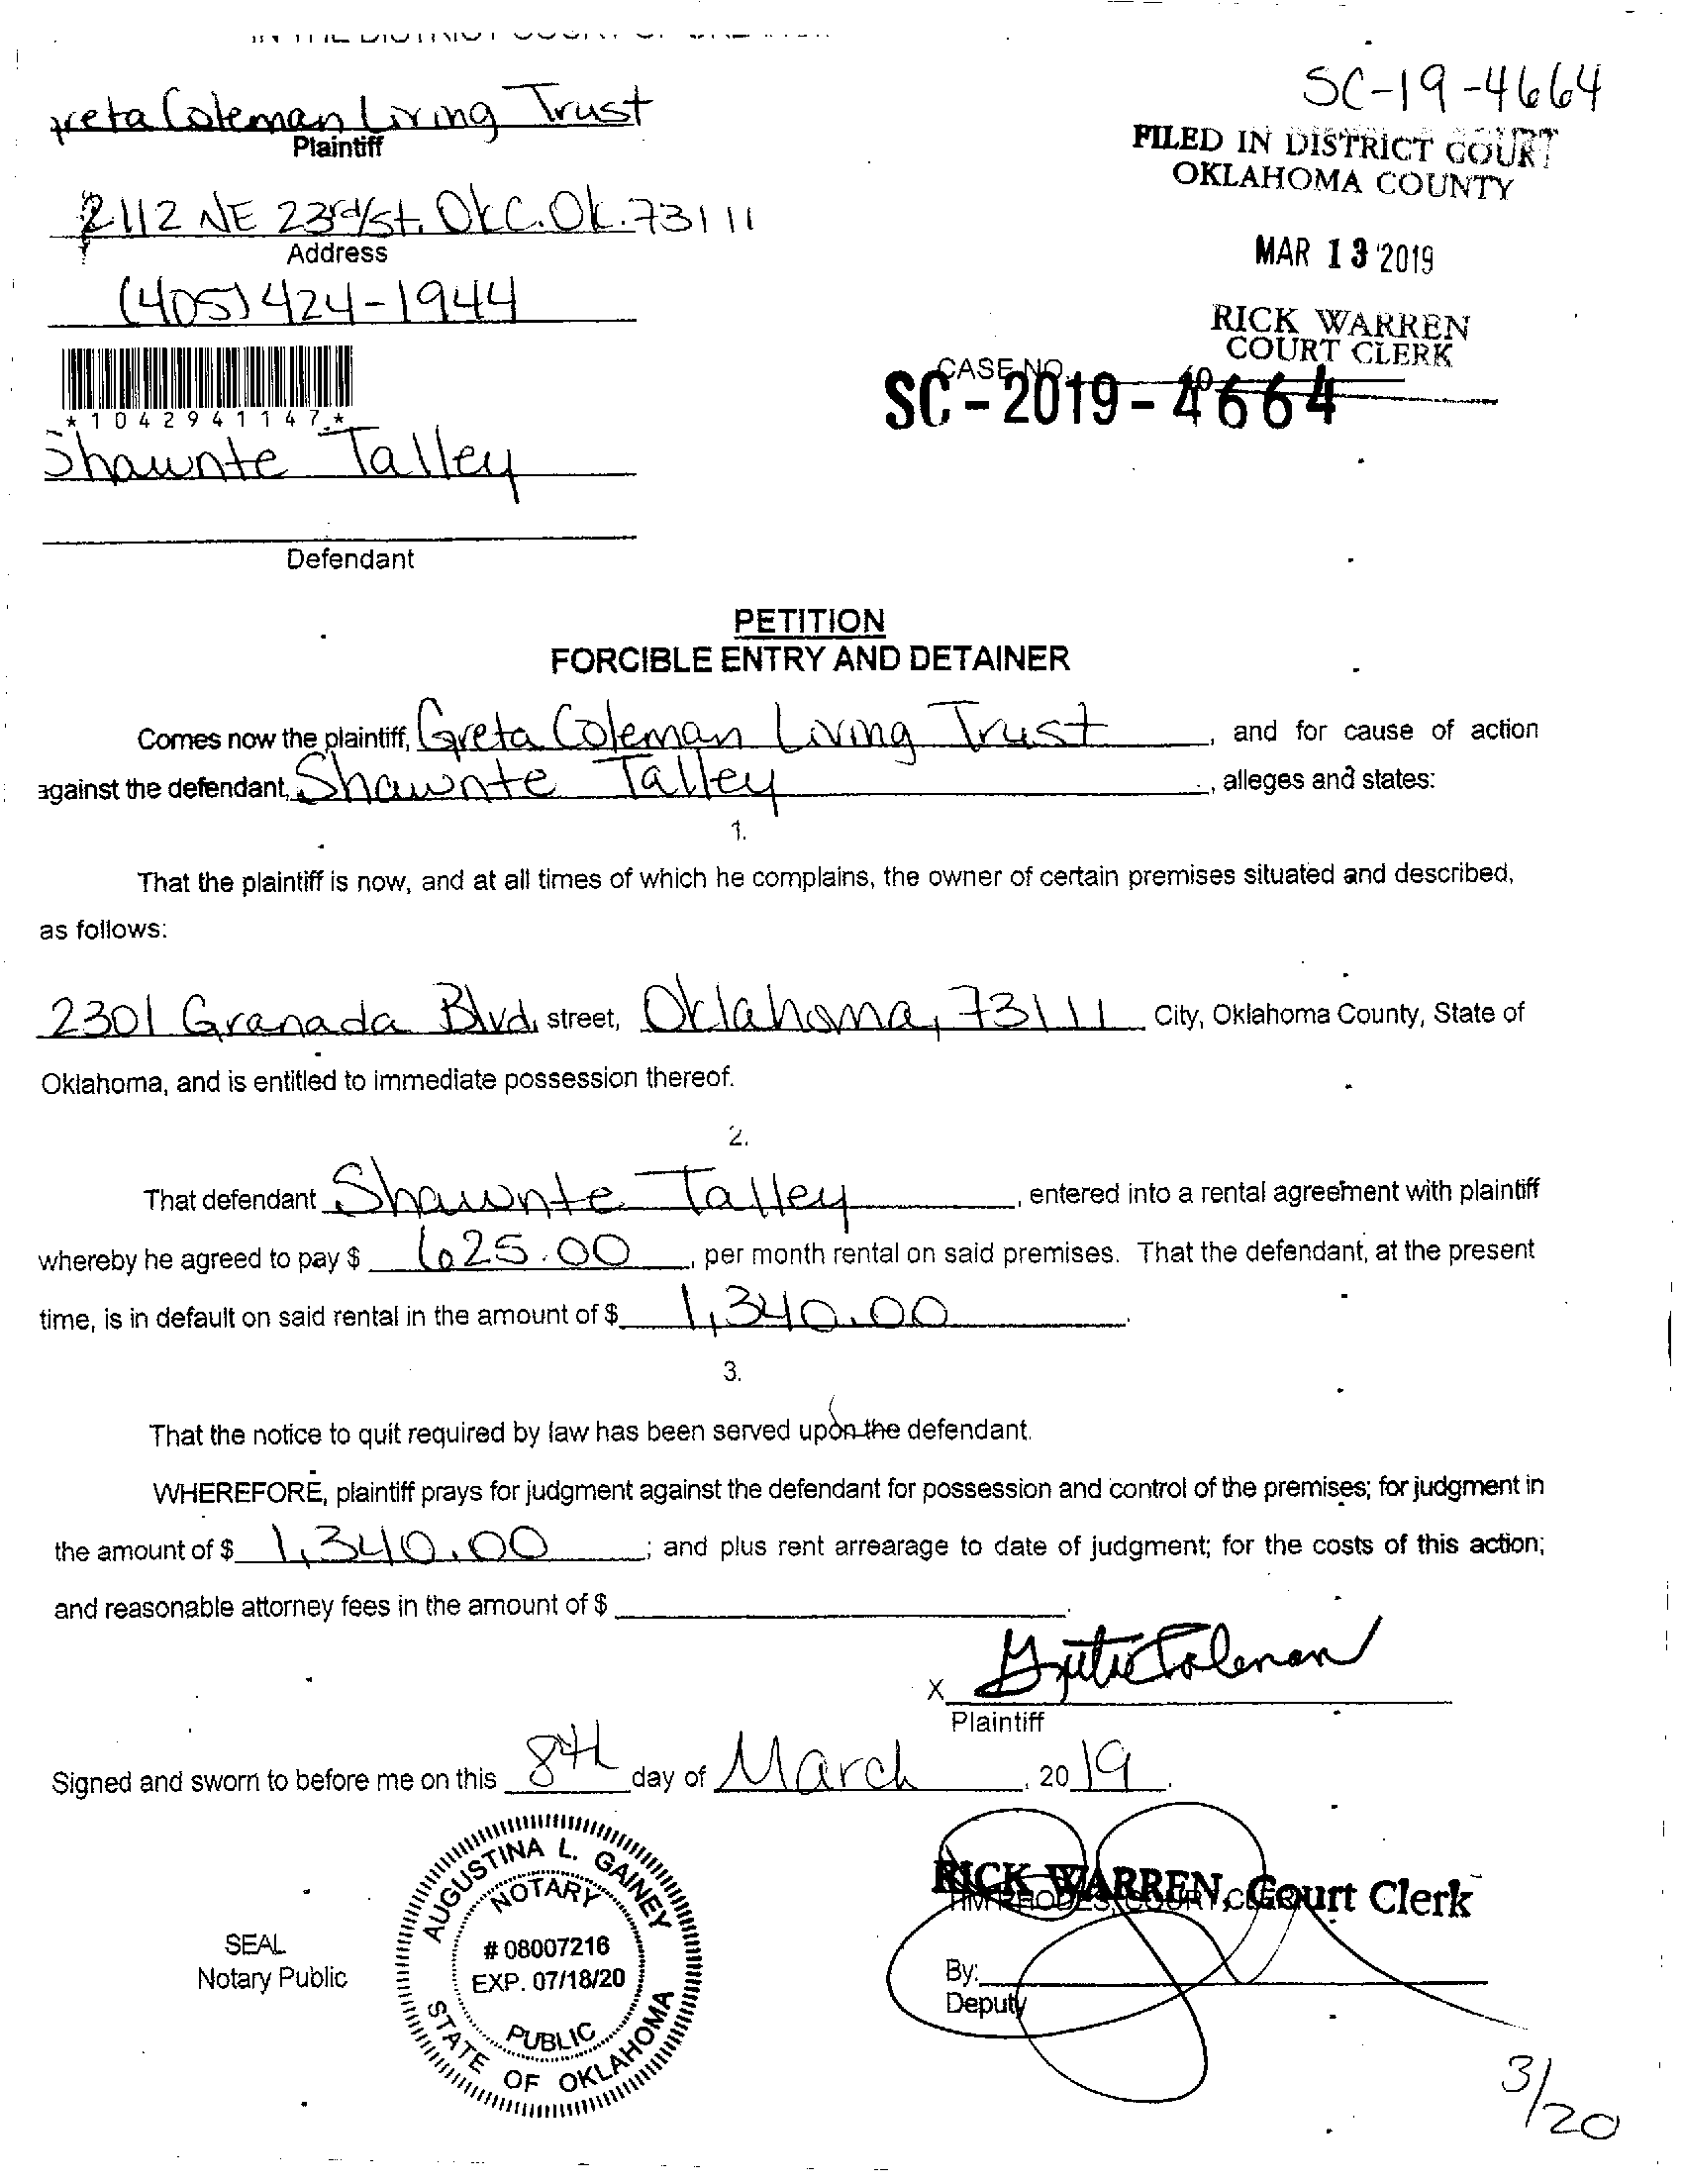 SC-19-4664
Greta Coleman Living Trust
Plaintiff
FILED IN DISTRICT COURT
OKLAHOMA COUNTY
2112 NE 23rd/st. OKC. Ok. 73111
Address
MAR 13 2019
(405) 424-1944
RICK WARREN
COURT CLERK
*1042941147*
CASE NO.
SC-2019-4664
Shawnte Talley
Defendant
PETITION
FORCIBLE ENTRY AND DETAINER
Comes now the plaintiff, Greta Coleman Living Trust, and for cause of action
against the defendant, Shawnte Talley, alleges and states:
1.
That the plaintiff is now, and at all times of which he complains, the owner of certain premises situated and described,
as follows:
2301 Granada Blvd. street, Oklahoma, 73111 City, Oklahoma County, State of
Oklahoma, and is entitled to immediate possession thereof.
2.
That defendant Shawnte Talley, entered into a rental agreement with plaintiff
whereby he agreed to pay $ 625.00, per month rental on said premises. That the defendant, at the present
time, is in default on said rental in the amount of $ 1,340.00.
3.
That the notice to quit required by law has been served upon the defendant.
WHEREFORE, plaintiff prays for judgment against the defendant for possession and control of the premises; for judgment in
the amount of $ 1,340.00; and plus rent arrearage to date of judgment; for the costs of this action;
and reasonable attorney fees in the amount of $
X Greta Coleman
Plaintiff
Signed and sworn to before me on this 8th day of March, 2019.
AUGUSTINA L. GAINEY
NOTARY
# 08007216
EXP. 07/18/20
PUBLIC
STATE OF OKLAHOMA
SEAL
Notary Public
RICK WARREN, Court Clerk
By:
Deputy
3/20